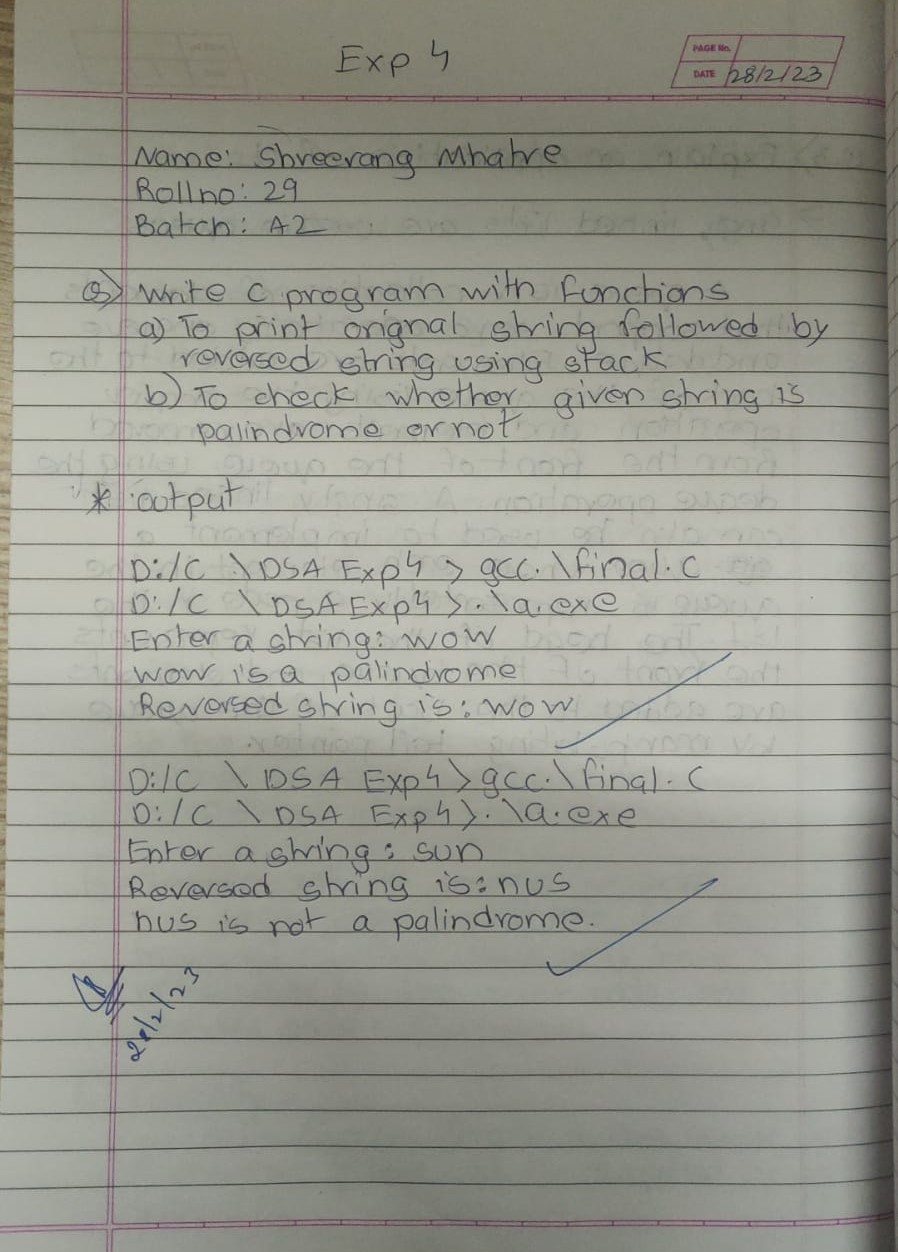 Exp 4
PAGE No.
DATE 28/2/23
Name: Shreerang Mhatre
Rollno: 29
Batch: A2
Q) Write C program with functions
a) To print orignal string followed by
reversed string using stack
b) To check whether given string is
palindrome or not
* output
D:/C \DSA Exp4 > gcc .\final.c
D:/C \DSA Exp4 >.\a.exe
Enter a string: wow
wow is a palindrome
Reversed string is: wow
D:/C \DSA Exp4>gcc.\final.c
D:/C \DSA Exp4>.\a.exe
Enter a string: sun
Reversed string is: nus
nus is not a palindrome.
28/2/23